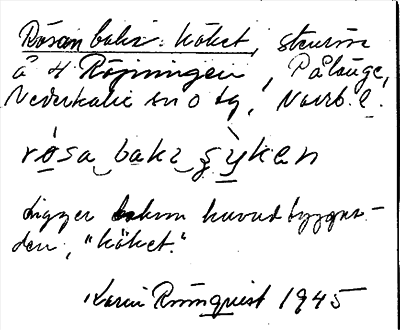 Råsan bakı köket, stenrös
å 4 Röjningen, Pålänge,
Nederkalix sn o tg, Norrb. l.
rósa bakı şỳkən
Ligger bakom huvudbyggna-
den, "köket."
Karin Rönnquist 1945